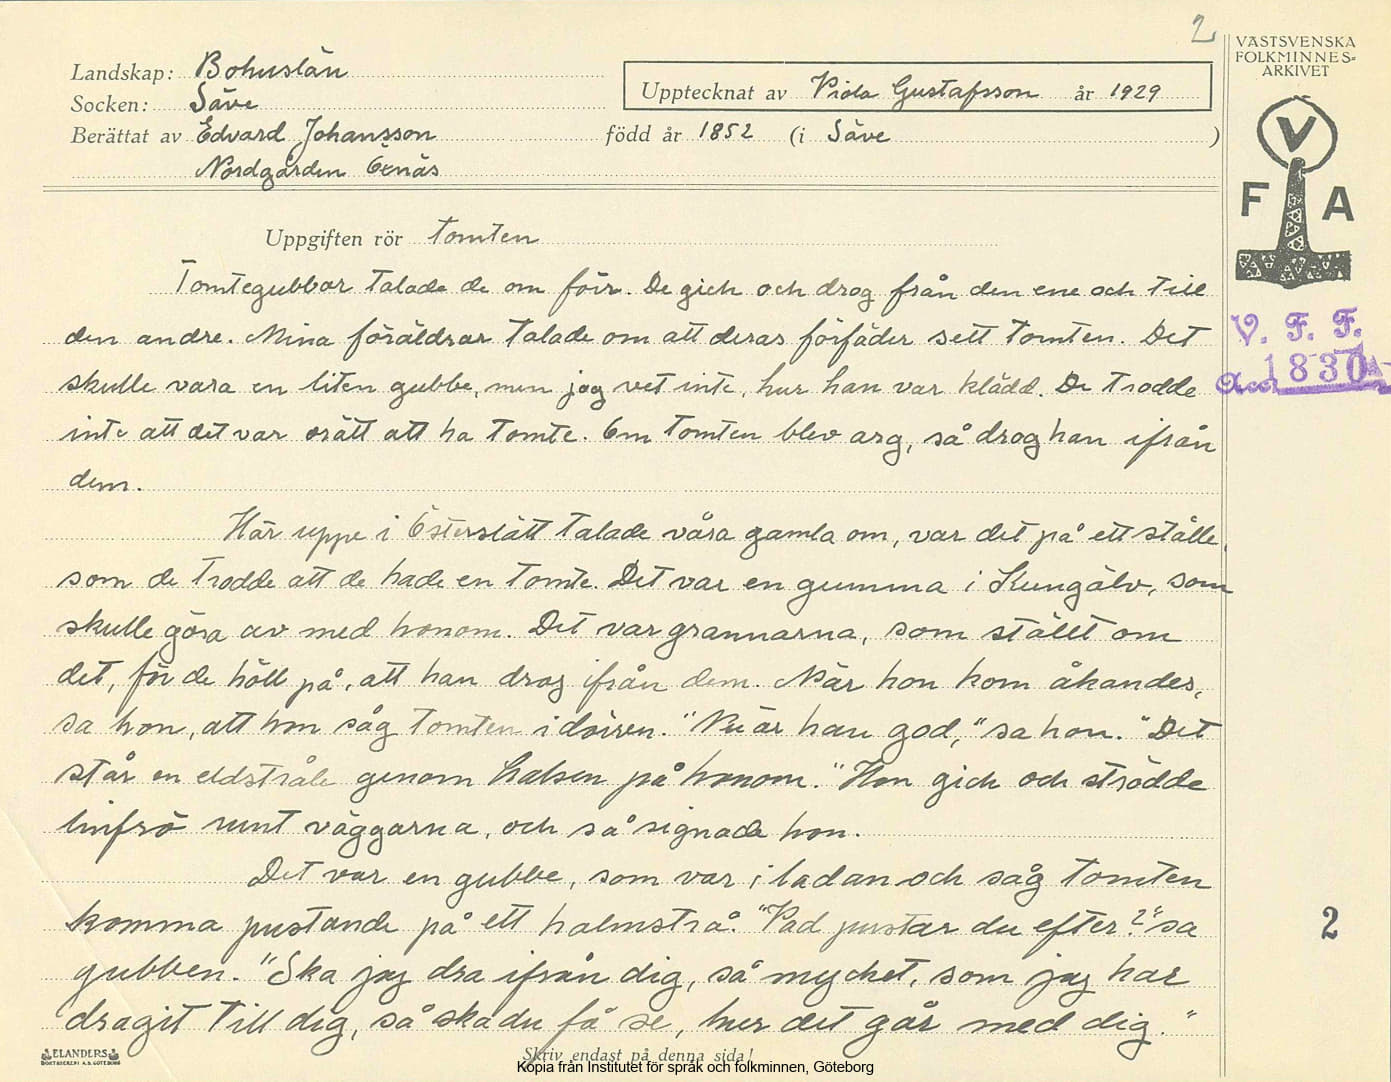 2
VÄSTSVENSKA
FOLKMINNES-
ARKIVET
Landskap: Bohuslän
Socken: Säve
Upptecknat av Viola Gustafsson år 1929
Berättat av Edvard Johansson född år 1852 (i Säve )
Nordgården Ernäs
V
F A
Uppgiften rör Tomten
Tomtegubbar talade de om förr. De gick och drog från den ene och till
den andre. Mina föräldrar talade om att deras förfäder sett tomten. Det
skulle vara en liten gubbe, men jag vet inte, hur han var klädd. De trodde
inte att det var orätt att ha tomte. Om tomten blev arg, så drog han ifrån
dem.
V. F. F.
Acc 1830
Här uppe i Österslätt talade våra gamla om, var det på ett ställe,
som de trodde att de hade en tomte. Det var en gumma i Kungälv, som
skulle göra av med honom. Det var grannarna, som ställt om
det, för de höll på, att han drog ifrån dem. När hon kom åkandes,
sa hon, att hon såg tomten i dörren. "Nu är han god," sa hon. "Det
står en eldstråle genom halsen på honom." Hon gick och strödde
linfrö runt väggarna, och så signade hon.
Det var en gubbe, som var i ladan och såg tomten
komma pustande på ett halmstrå. "Vad pustar du efter?" sa
gubben. "Ska jag dra ifrån dig, så mycket, som jag har
dragit till dig, så ska du få se, hur det går med dig."
2
ELANDERS
BOKTRYCKERI A.B. GÖTEBORG
Skriv endast på denna sida!
Kopia från Institutet för språk och folkminnen, Göteborg